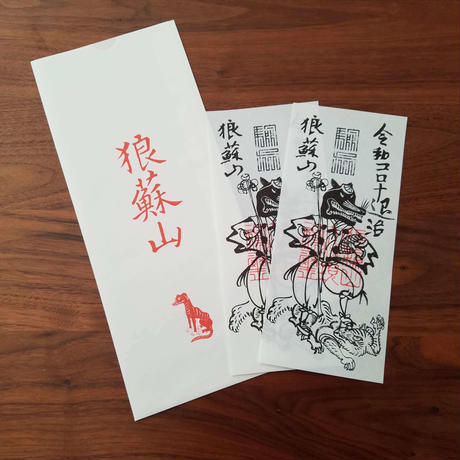 狼蘇山
狼蘇山
狼蘇山
令和コロナ退治